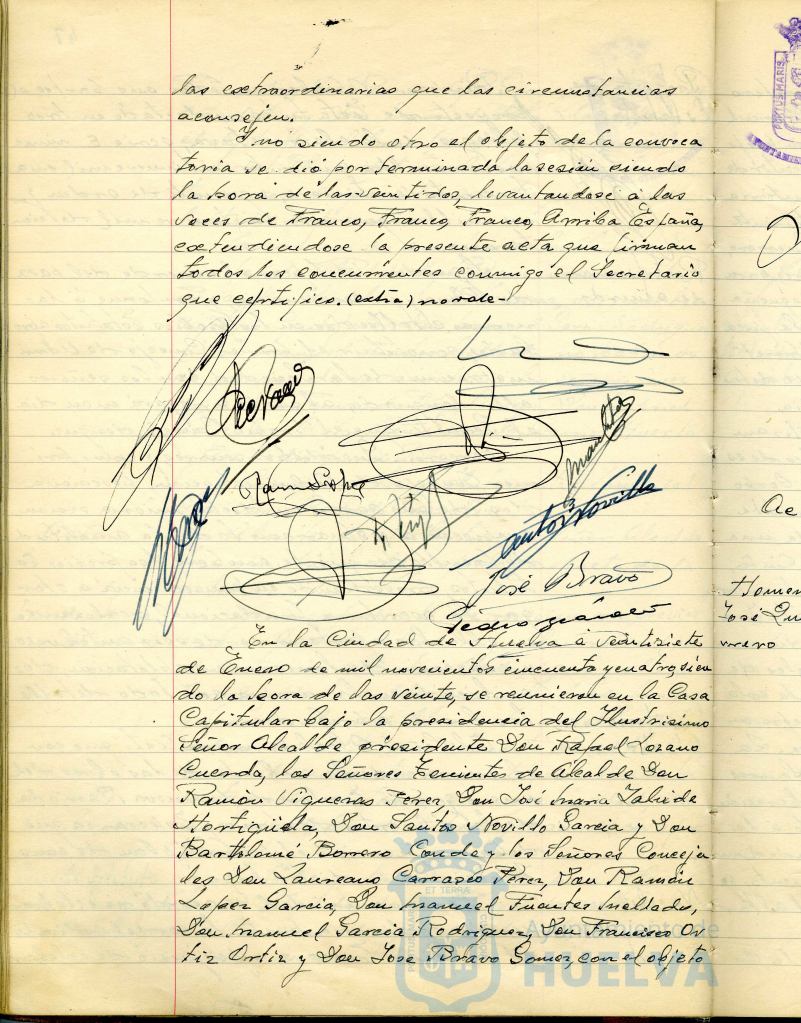 las extraordinarias que las circunstancias
aconsejen.
Y no siendo otro el objeto de la convoca
toria se dió por terminada la sesión siendo
la hora de las veintidos, levantandose á las
voces de Franco, Franco, Franco, Arriba España,
extendiendose la presente acta que firman
todos los concurrentes conmigo el Secretario
que certifico. (extra) no vale-
Ramon Lopez
Santos Novillo
José Bravo
Pedro
En la Ciudad de Huelva á veintisiete
de Enero de mil novecientos cincuenta y cuatro, sien
do la hora de las veinte, se reunieron en la Casa
Capitular bajo la presidencia del Ilustrisimo
Señor Alcalde presidente Don Rafael Lozano
Cuerda, los Señores Tenientes de Alcalde Don
Ramón Vigueras Perez, Don José Maria Zalvide
Hortigüela, Don Santos Novillo Garcia y Don
Bartolomé Borrero Conde y los Señores Conceja
les Don Laureano Carrasco Perez, Don Ramón
Lopez Garcia, Don Manuel Fuentes Mellado,
Don Manuel Garcia Rodriguez, Don Francisco Or
tiz Ortiz y Don José Bravo Gomez, con el objeto
Ayuntamiento de
HUELVA
PORTUS MARIS
ET TERRAE
Ac
Homen
José Qu
rrero